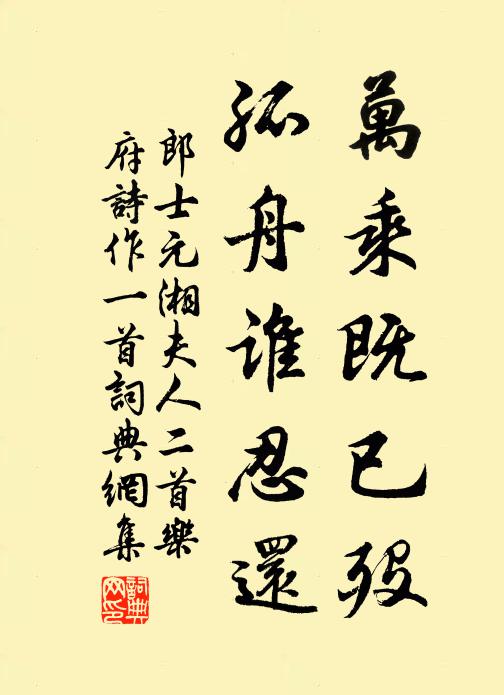 萬乘既已歿
孤舟誰忍還
郎士元湘夫人二首樂
府詩作一首詞典網集
詞典網印